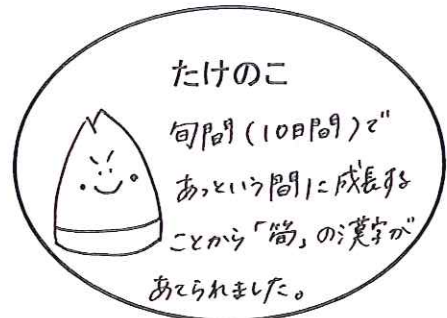 たけのこ
旬間(10日間)で
あっという間に成長する
ことから「筍」の漢字が
あてられました。